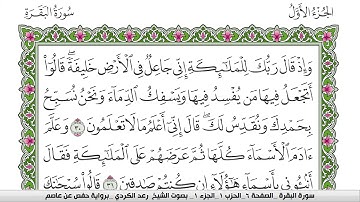 الجُزْءُ الأَوَّلُ
سُورَةُ البَقَرَةِ
وَإِذْ قَالَ رَبُّكَ لِلْمَلَـٰٓئِكَةِ إِنِّي جَاعِلٌ فِي ٱلْأَرْضِ خَلِيفَةً ۖ قَالُوٓا۟
أَتَجْعَلُ فِيهَا مَن يُفْسِدُ فِيهَا وَيَسْفِكُ ٱلدِّمَآءَ وَنَحْنُ نُسَبِّحُ
بِحَمْدِكَ وَنُقَدِّسُ لَكَ ۖ قَالَ إِنِّيٓ أَعْلَمُ مَا لَا تَعْلَمُونَ ٣٠ وَعَلَّمَ
ءَادَمَ ٱلْأَسْمَآءَ كُلَّهَا ثُمَّ عَرَضَهُمْ عَلَى ٱلْمَلَـٰٓئِكَةِ فَقَالَ
أَنۢبِـُٔونِي بِأَسْمَآءِ هَـٰٓؤُلَآءِ إِن كُنتُمْ صَـٰدِقِينَ ٣١ قَالُوا۟ سُبْحَـٰنَكَ
سورة البقرة _الصفحة ٦_ الحزب ١_ الجزء ١_ بصوت الشيخ رعد الكردي _برواية حفص عن عاصم